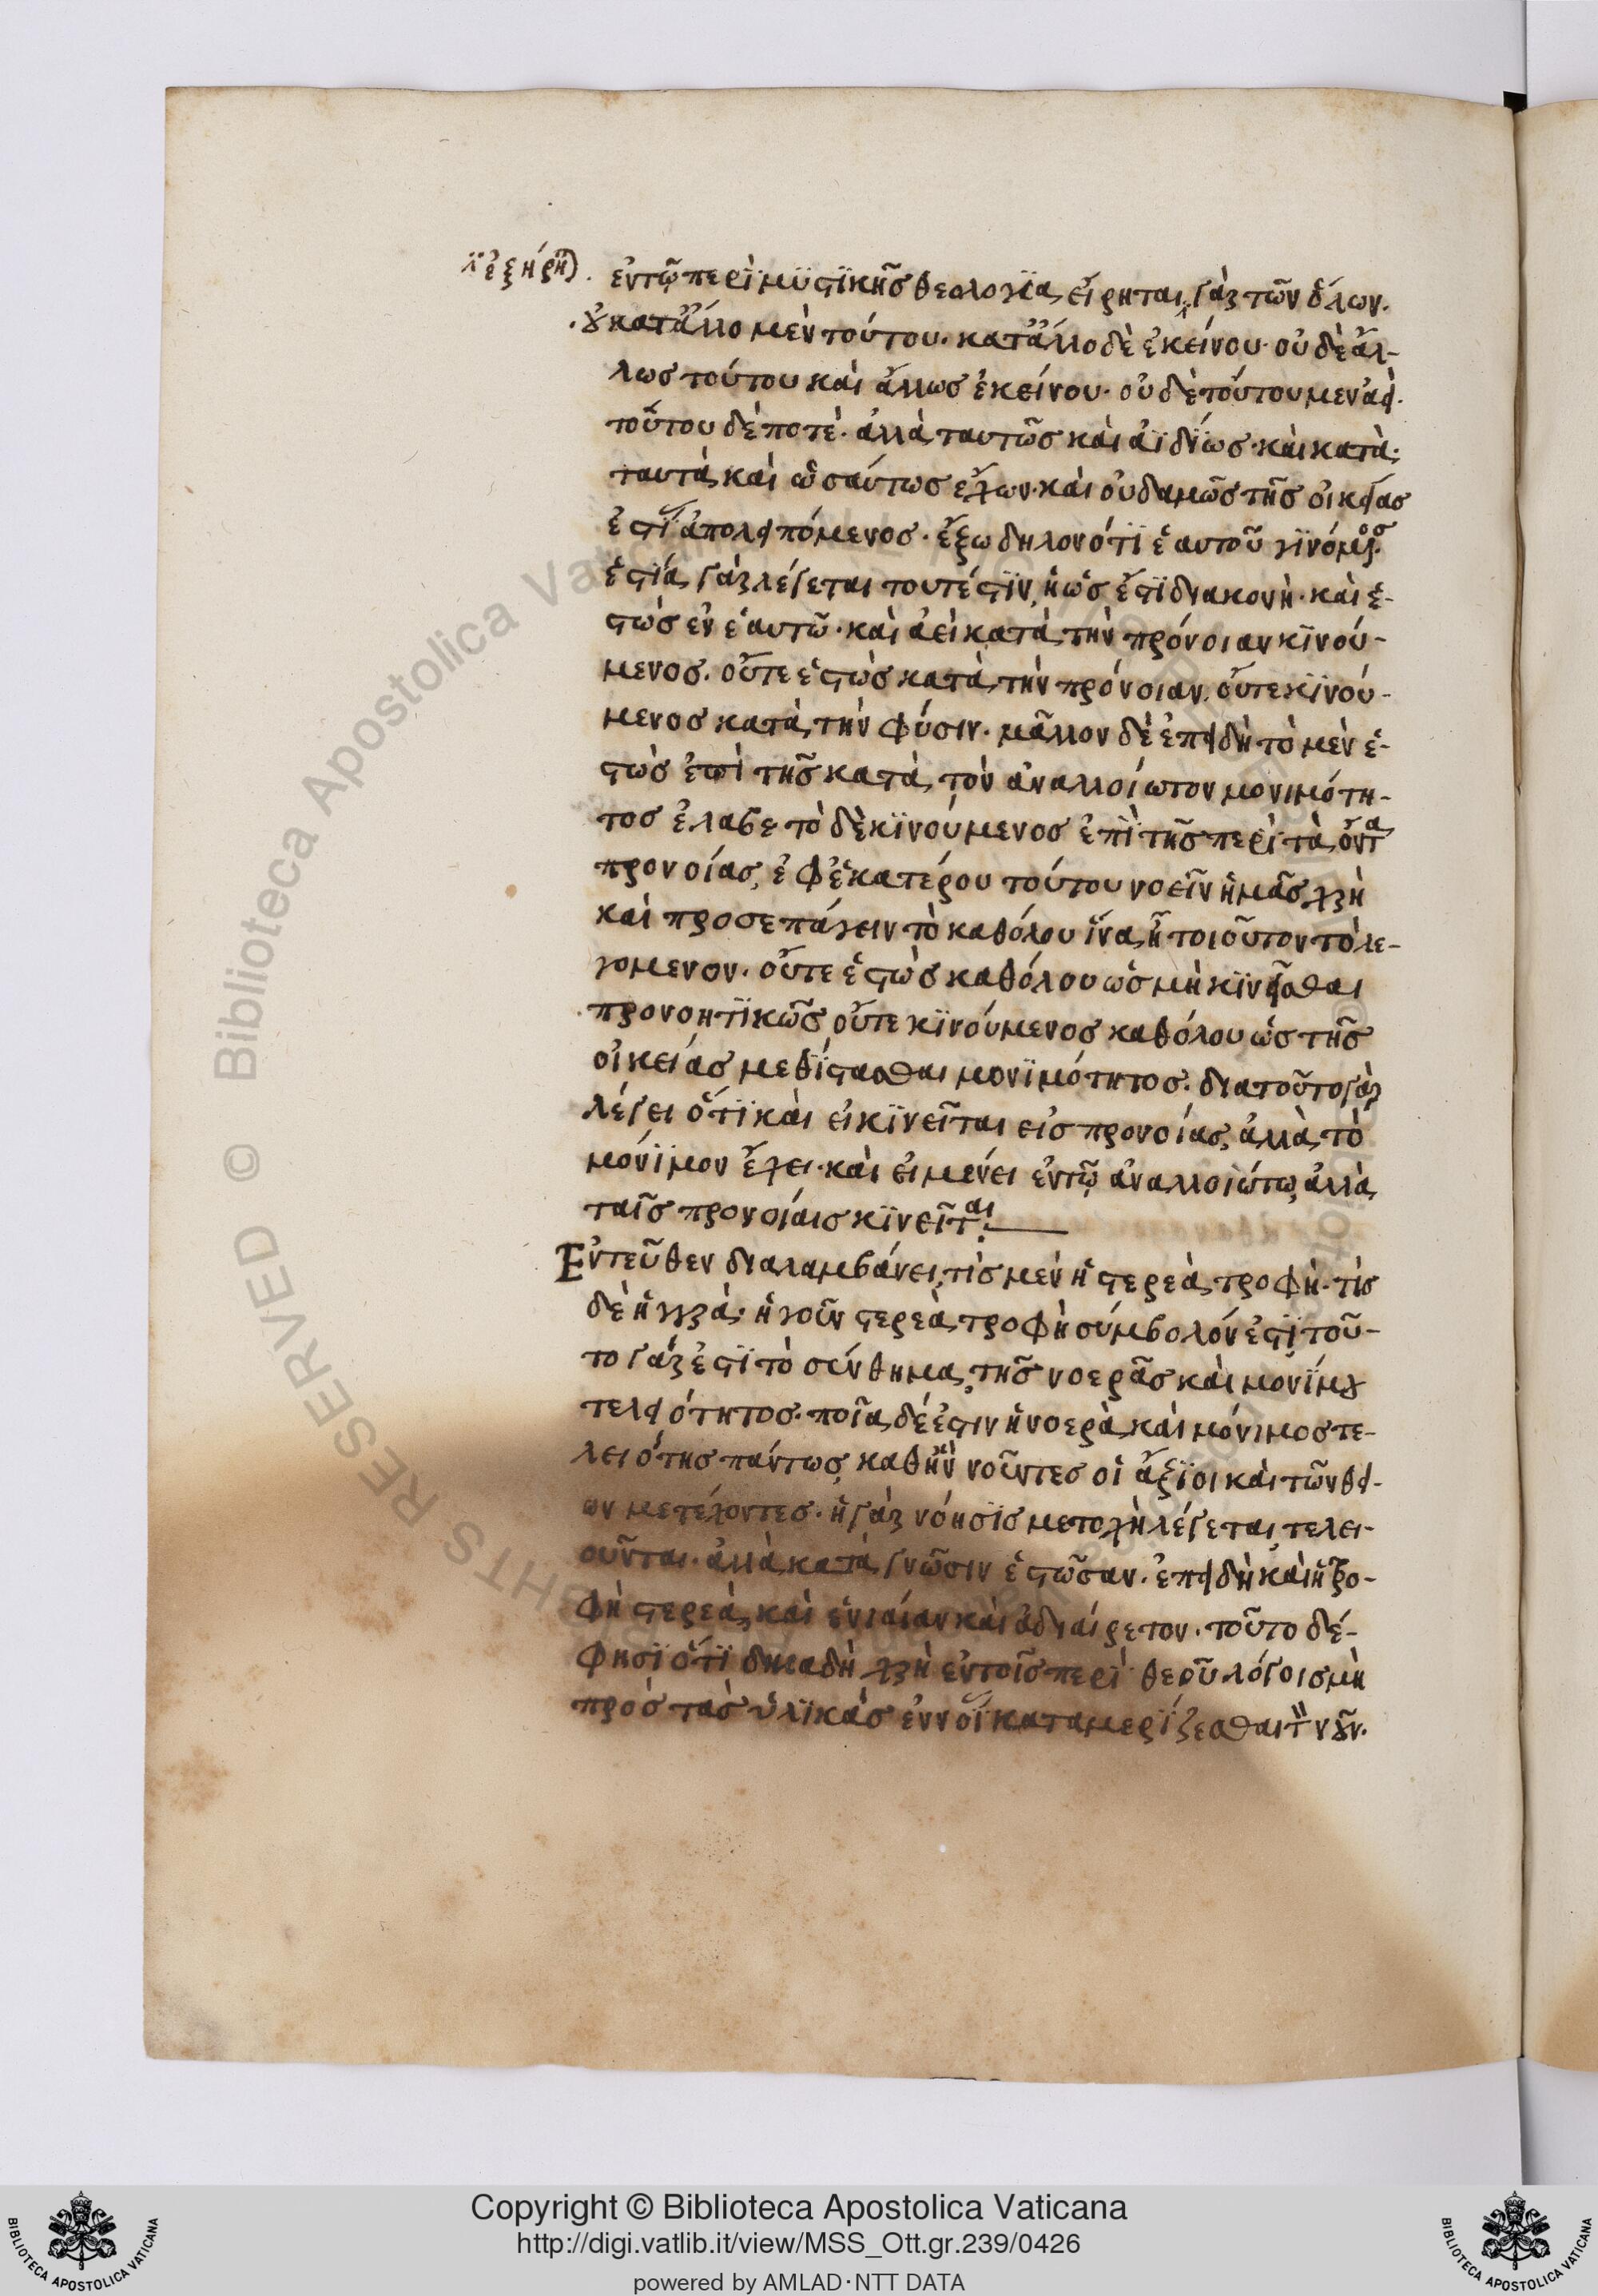 λ῀ ἐξήρη)
ἐντῷ περὶ μυστικῆς θεολογία, εἴρηται, γὰρ τῶν ὅλων.
οὐ κατ' ἄλλο μὲν τούτου. κατ' ἄλλο δὲ ἐκείνου οὐδὲ ἄλ-
λως τούτου καὶ ἄλλως ἐκείνου. οὐδὲ τούτου μεν ἀεὶ.
τούτου δὲ ποτὲ. ἀλλὰ ταυτῶς καὶ ἀϊδίως. καὶ κατὰ
ταυτὰ καὶ ὡσαύτως ἔχων. καὶ οὐδαμῶς τῆς οἰκείας
ἐστὶ ἀπολειπόμενος. ἔξω δηλονότι ἑαυτοῦ γινόμενος.
ἑστία, γὰρ λέγεται τουτέστιν, ἡ ὡς ἔστι διακονὴ. καὶ ἑ-
στὼς ἐν ἑαυτῷ. καὶ ἀεὶ κατὰ τὴν πρόνοιαν κινού-
μενος. οὔτε ἑστὼς κατὰ τὴν πρόνοιαν, οὔτε κινού-
μενος κατὰ τὴν φύσιν. μᾶλλον δὲ ἐπειδὴ τὸ μὲν ἑ-
στὼς ἐπὶ τῆς κατὰ τὸν ἀναλλοίωτον μονιμότη-
τος ἔλαβε τὸ δὲ κινούμενος ἐπὶ τῆς περὶ τὰ ὄντα
προνοίας, ἐφ' ἑκατέρου τούτου νοεῖν ἡμᾶς χρὴ
καὶ προσεπάγειν τὸ καθόλου ἵνα, ἦ τοιοῦτον τὸ λε-
γομενον. οὔτε ἑστὼς καθόλου ὡς μὴ κινεῖσθαι
προνοητικῶς οὔτε κινούμενος καθόλου ὡς τῆς
οἰκείας μεθίστασθαι μονιμότητος. διατοῦτο γὰρ
λέγει ὅτι καὶ εἰ κινεῖται εἰς προνοίας, ἀλλὰ τὸ
μόνιμον ἔχει. καὶ εἰ μένει ἐντῷ ἀναλλοιώτω, ἀλλὰ
ταῖς προνοίαις κινεῖται.
Ἐντεῦθεν διαλαμβάνει, τίς μὲν ἡ στερεὰ τροφὴ. τίς
δὲ ἡ ὑγρά. ἡ γοῦν στερεὰ τροφὴ σύμβολόν ἐστι τοῦ-
το γάρ ἐστι τὸ σύνθημα, τῆς νοερᾶς καὶ μονίμου
τελειότητος. ποῖα, δέ ἐστιν ἡ νοερὰ καὶ μόνιμος τε-
λειότης πάντως, καθ' ἣν νοῦντες οἱ ἄξιοι καὶ τῶν θεί-
ων μετέχοντες. ἡ γὰρ νόησις μετοχὴ λέγεται, τελει-
οῦνται. ἀλλὰ κατὰ γνῶσιν ἑστῶσαν. ἐπειδὴ καὶ ἡ τρο-
φὴ στερεὰ, καὶ ἑνιαίαν καὶ ἀδιαίρετον. τοῦτο δέ-
φησι ὅτι δηλαδὴ χρὴ ἐντοῖς περὶ θεοῦ λόγοις μὴ
πρὸς τὰς ὑλικὰς ἐννοί καταμερίζεσθαι τὸν νοῦν.